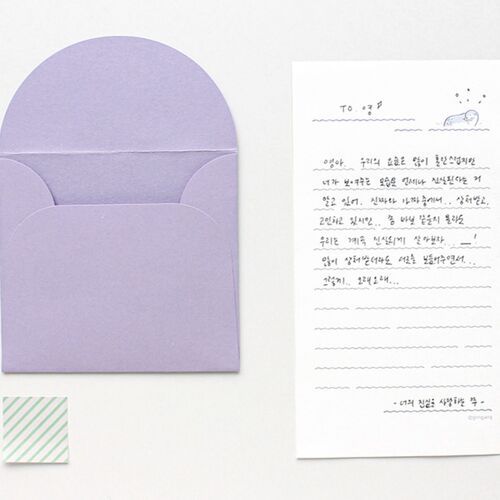 TO. 영
영아. 우리의 요즘은 많이 혼란스럽지만
너가 보여주는 모습은 언제나 진실된다는 걸
알고 있어. 진짜와 가짜 중에서.. 상처받고,
고민하고 있지만.. 좀 바보 같을지 몰라도
우리는 계속 진실되게 살아보자.. __!
많이 상처받더라도 서로를 보듬어주면서..
그렇게.. 오래오래...
- 너의 진실을 사랑하는